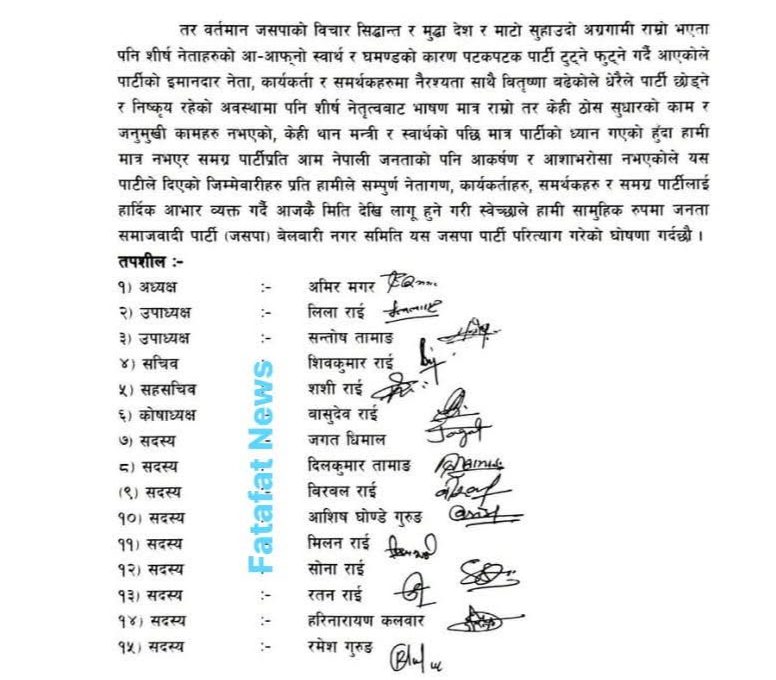 तर वर्तमान जसपाको विचार सिद्धान्त र मुद्धा देश र माटो सुहाउदो अग्रगामी राम्रो भएता
पनि शीर्ष नेताहरुको आ-आफ्नो स्वार्थ र घमण्डको कारण पटकपटक पार्टी टुट्ने फुट्ने गर्दै आएकोले
पार्टीको इमानदार नेता, कार्यकर्ता र समर्थकहरुमा नैरश्यता साथै बितृष्णा बढेकोले धेरैले पार्टी छोड्ने
र निष्कृय रहेको अवस्थामा पनि शीर्ष नेतृत्वबाट भाषण मात्र राम्रो तर केही ठोस सुधारको काम र
जनुमुखी कामहरु नभएको, केही थान मन्त्री र स्वार्थको पछि मात्र पार्टीको ध्यान गएको हुंदा हामी
मात्र नभएर समग्र पार्टीप्रति आम नेपाली जनताको पनि आकर्षण र आशाभरोसा नभएकोले यस
पाटीले दिएको जिम्मेबारीहरु प्रति हामीले सम्पुर्ण नेतागण, कार्यकर्ताहरु, समर्थकहरु र समग्र पार्टीलाई
हार्दिक आभार व्यक्त गर्दै आजकै मिति देखि लागू हुने गरी स्वेच्छाले हामी सामुहिक रुपमा जनता
समाजवादी पार्टी (जसपा) बेलबारी नगर समिति यस जसपा पार्टी परित्याग गरेको घोषणा गर्दछौ ।
तपशील :-
१) अध्यक्ष :- अमिर मगर
२) उपाध्यक्ष :- लिला राई
३) उपाध्यक्ष :- सन्तोष तामाङ
४) सचिव :- शिवकुमार राई
५) सहसचिव :- शशी राई
६) कोषाध्यक्ष :- बासुदेव राई
७) सदस्य :- जगत धिमाल Jagat
८) सदस्य :- दिलकुमार तामाङ
(९) सदस्य :- बिरवल राई
१०) सदस्य :- आशिष घोण्डे गुरुङ
११) सदस्य :- मिलन राई
१२) सदस्य :- सोना राई
१३) सदस्य :- रतन राई
१४) सदस्य :- हरिनारायण कलवार
१५) सदस्य :- रमेश गुरुङ
Fatafat News